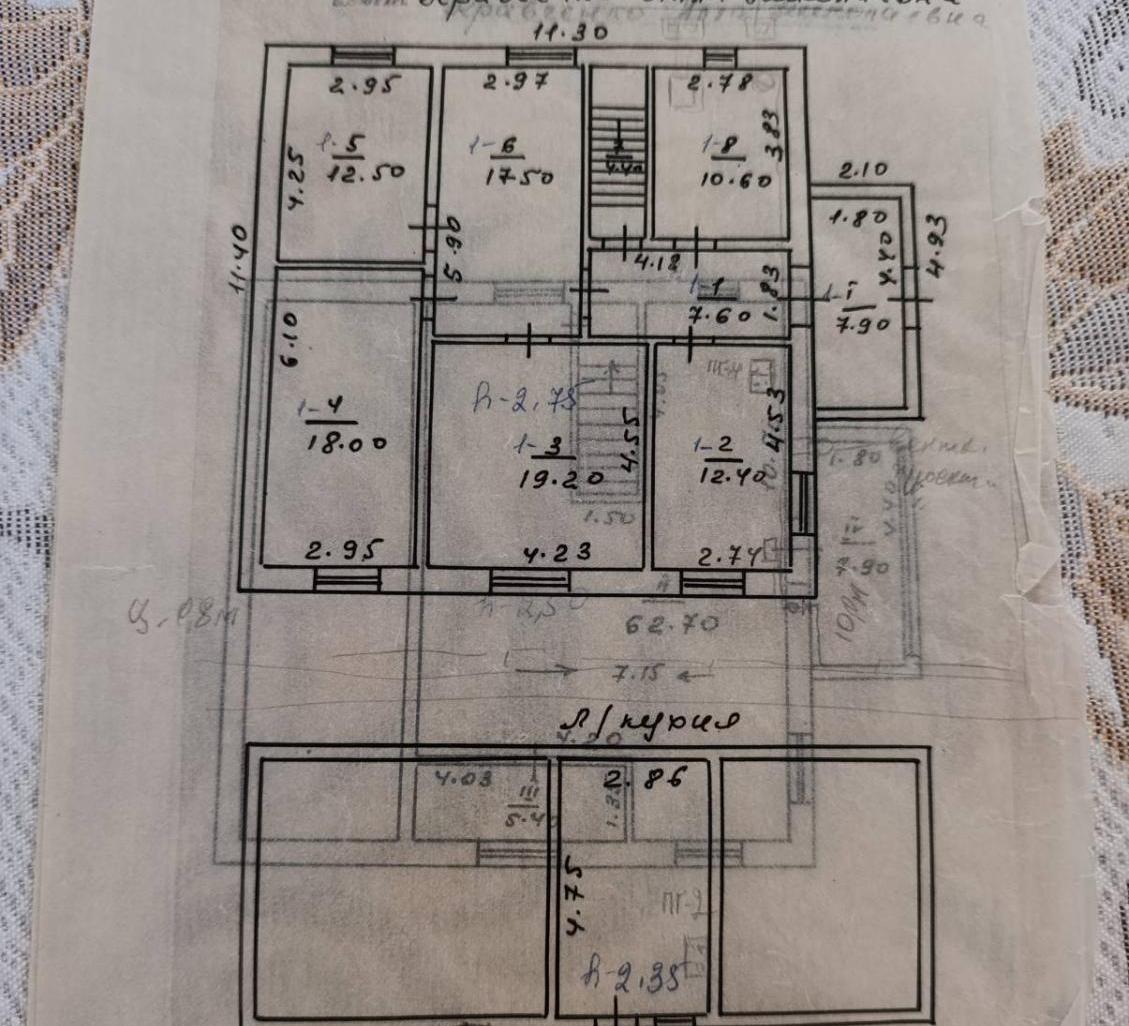 11.30
2.95
2.97
2.78
1-5
12.50
4.25
1-6
17.50
5.90
4.40
1-8
10.60
3.83
2.10
1.80
4.40
4.93
1-I
7.90
11.40
4.18
1-1
7.60
1.83
6.10
1-4
18.00
2.95
h-2,75
1-3
19.20
4.55
4.23
1-2
12.40
4.53
2.74
ПГ-4
1.50
1.80
7.90
h-2,50
A
62.70
7.15
Л/кухня
4.20
4.03
III
5.40
2.86
4.75
ПГ-2
h-2,35